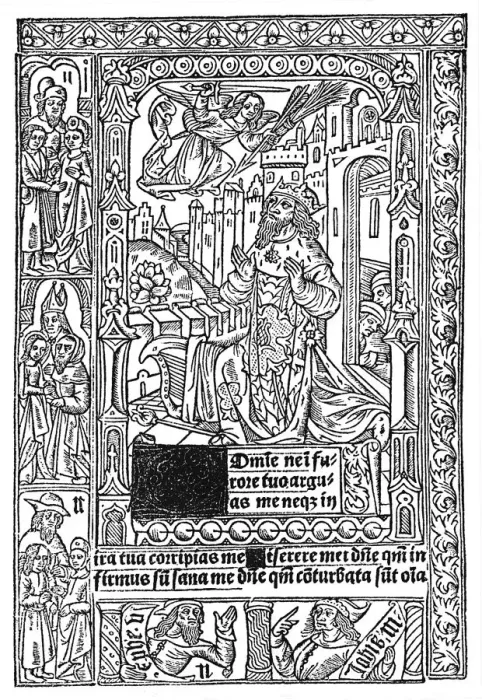 Omīe ne ī fu-
rore tuo argu-
as me neqz in
ira tua corripias me iserere mei dn̄e qm̄ in
firmus sū sana me dn̄e qm̄ cōturbata sūt oīa